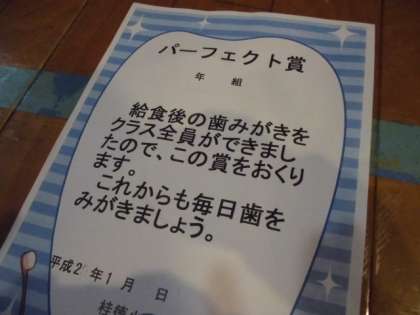 パーフェクト賞
年 組
給食後の歯みがきを
クラス全員ができまし
たので、この賞をおくり
ます。
これからも毎日歯を
みがきましょう。
平成2 年1月 日